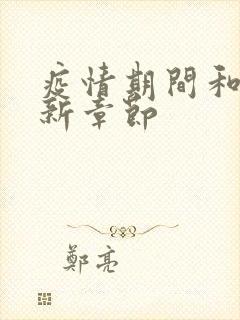 疫情期間和
新章節
鄭亮